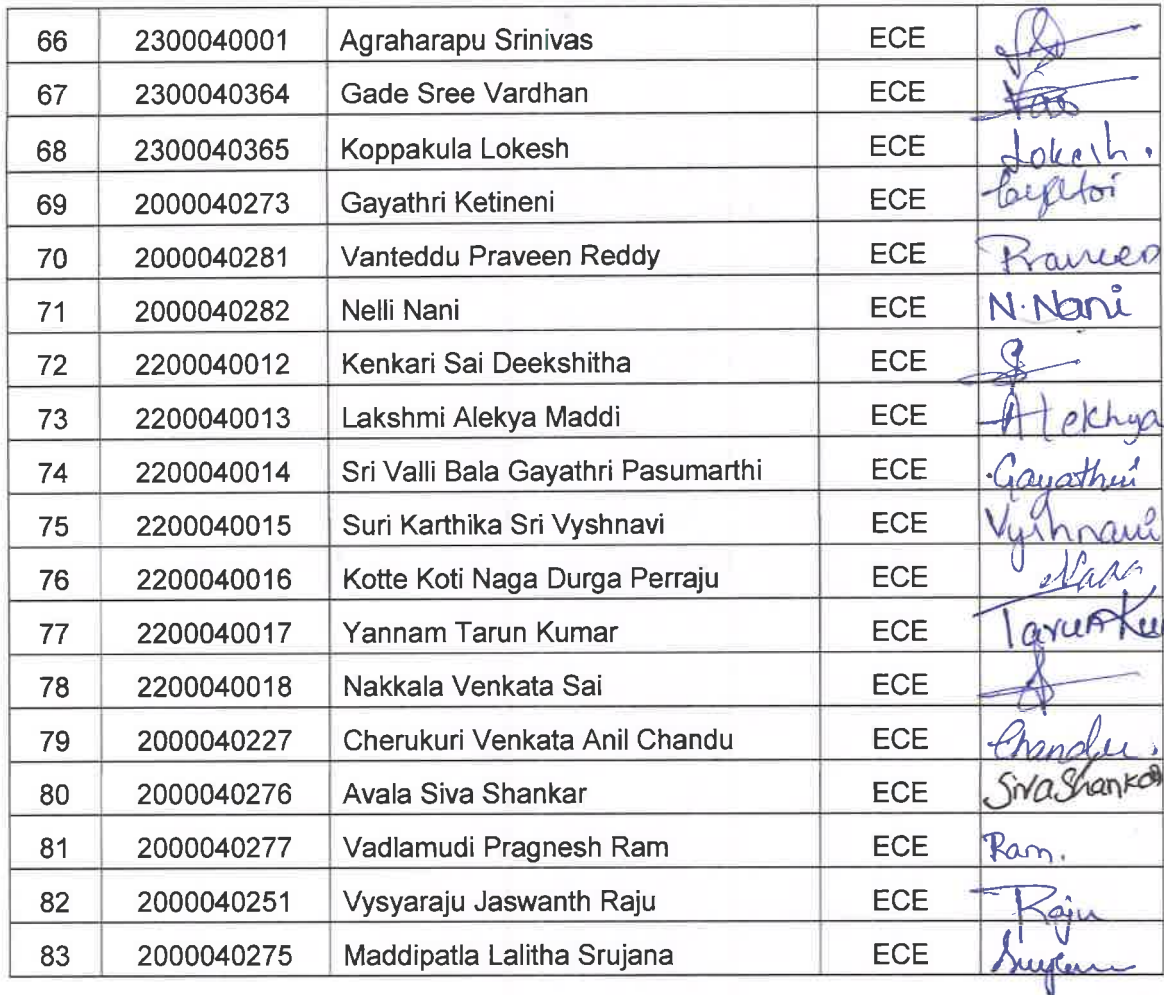 66 2300040001 Agraharapu Srinivas ECE
67 2300040364 Gade Sree Vardhan ECE
68 2300040365 Koppakula Lokesh ECE Lokesh.
69 2000040273 Gayathri Ketineni ECE
70 2000040281 Vanteddu Praveen Reddy ECE Praveen
71 2000040282 Nelli Nani ECE N.Nani
72 2200040012 Kenkari Sai Deekshitha ECE
73 2200040013 Lakshmi Alekya Maddi ECE Alekhya
74 2200040014 Sri Valli Bala Gayathri Pasumarthi ECE Gayathri
75 2200040015 Suri Karthika Sri Vyshnavi ECE Vyshnavi
76 2200040016 Kotte Koti Naga Durga Perraju ECE
77 2200040017 Yannam Tarun Kumar ECE Tarun
78 2200040018 Nakkala Venkata Sai ECE
79 2000040227 Cherukuri Venkata Anil Chandu ECE Chandu.
80 2000040276 Avala Siva Shankar ECE Siva Shankar
81 2000040277 Vadlamudi Pragnesh Ram ECE Ram.
82 2000040251 Vysyaraju Jaswanth Raju ECE Raju
83 2000040275 Maddipatla Lalitha Srujana ECE